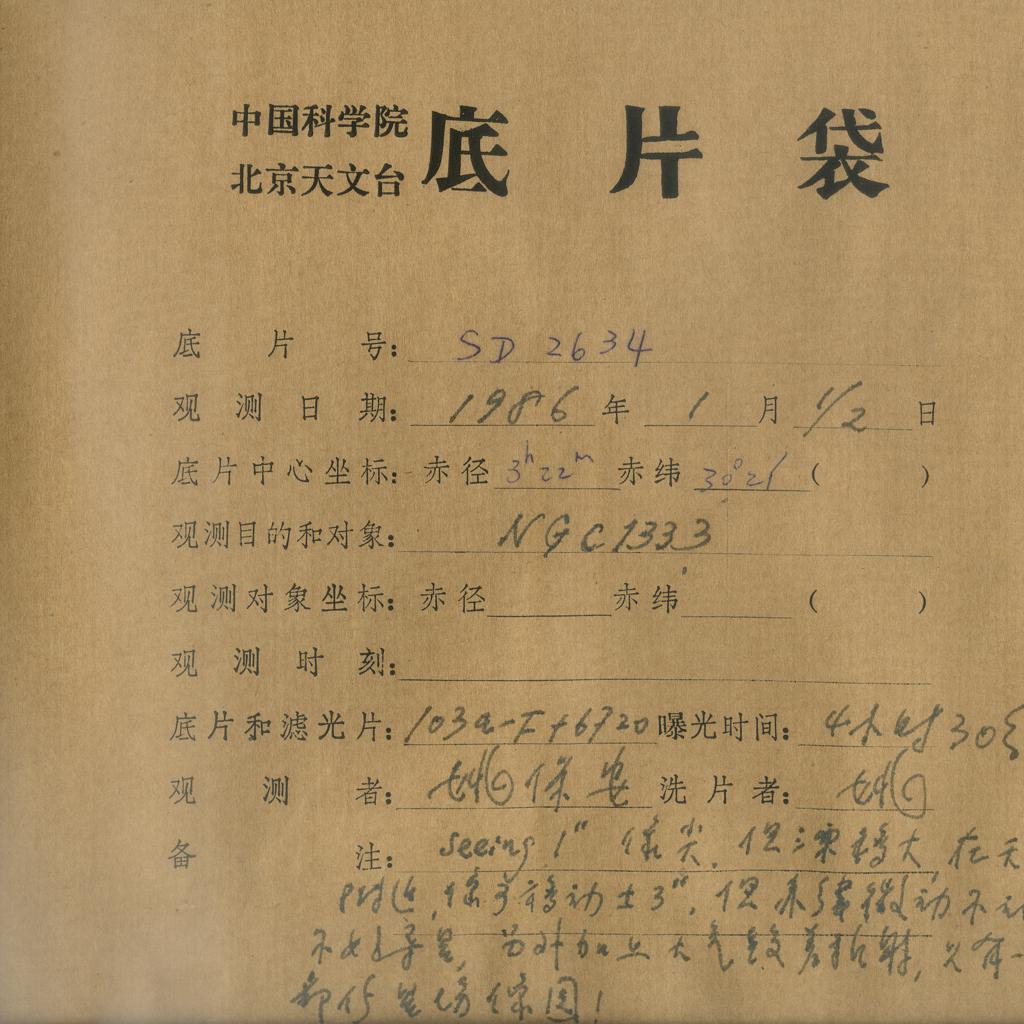 中国科学院
北京天文台
底片袋
底片号: SD 2634
观测日期: 1986 年 1 月 1/2 日
底片中心坐标: 赤径 3h22m 赤纬 30°21 ( )
观测目的和对象: NGC1333
观测对象坐标: 赤径 赤纬 ( )
观测时刻:
底片和滤光片: 103a-F+6720 曝光时间: 4小时30
观测者: 保安 洗片者:
备注: seeing 1" 像尖, 但漂移大, 在天
附近, 移动±3", 但赤纬微动不
不 导星, 另外加上大气较差折射, 只有一
部份星场像圆!